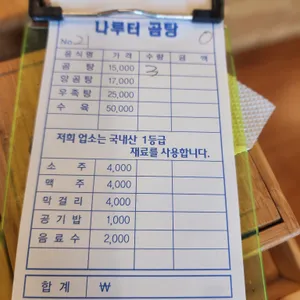 나루터 곰탕
No. 21 0
음식명 가격 수량 금액
곰탕 15,000 3
양곰탕 17,000
우족탕 25,000
수육 50,000
저희 업소는 국내산 1등급
재료를 사용합니다.
소주 4,000
맥주 4,000
막걸리 4,000
공기밥 1,000
음료수 2,000
합계 ₩